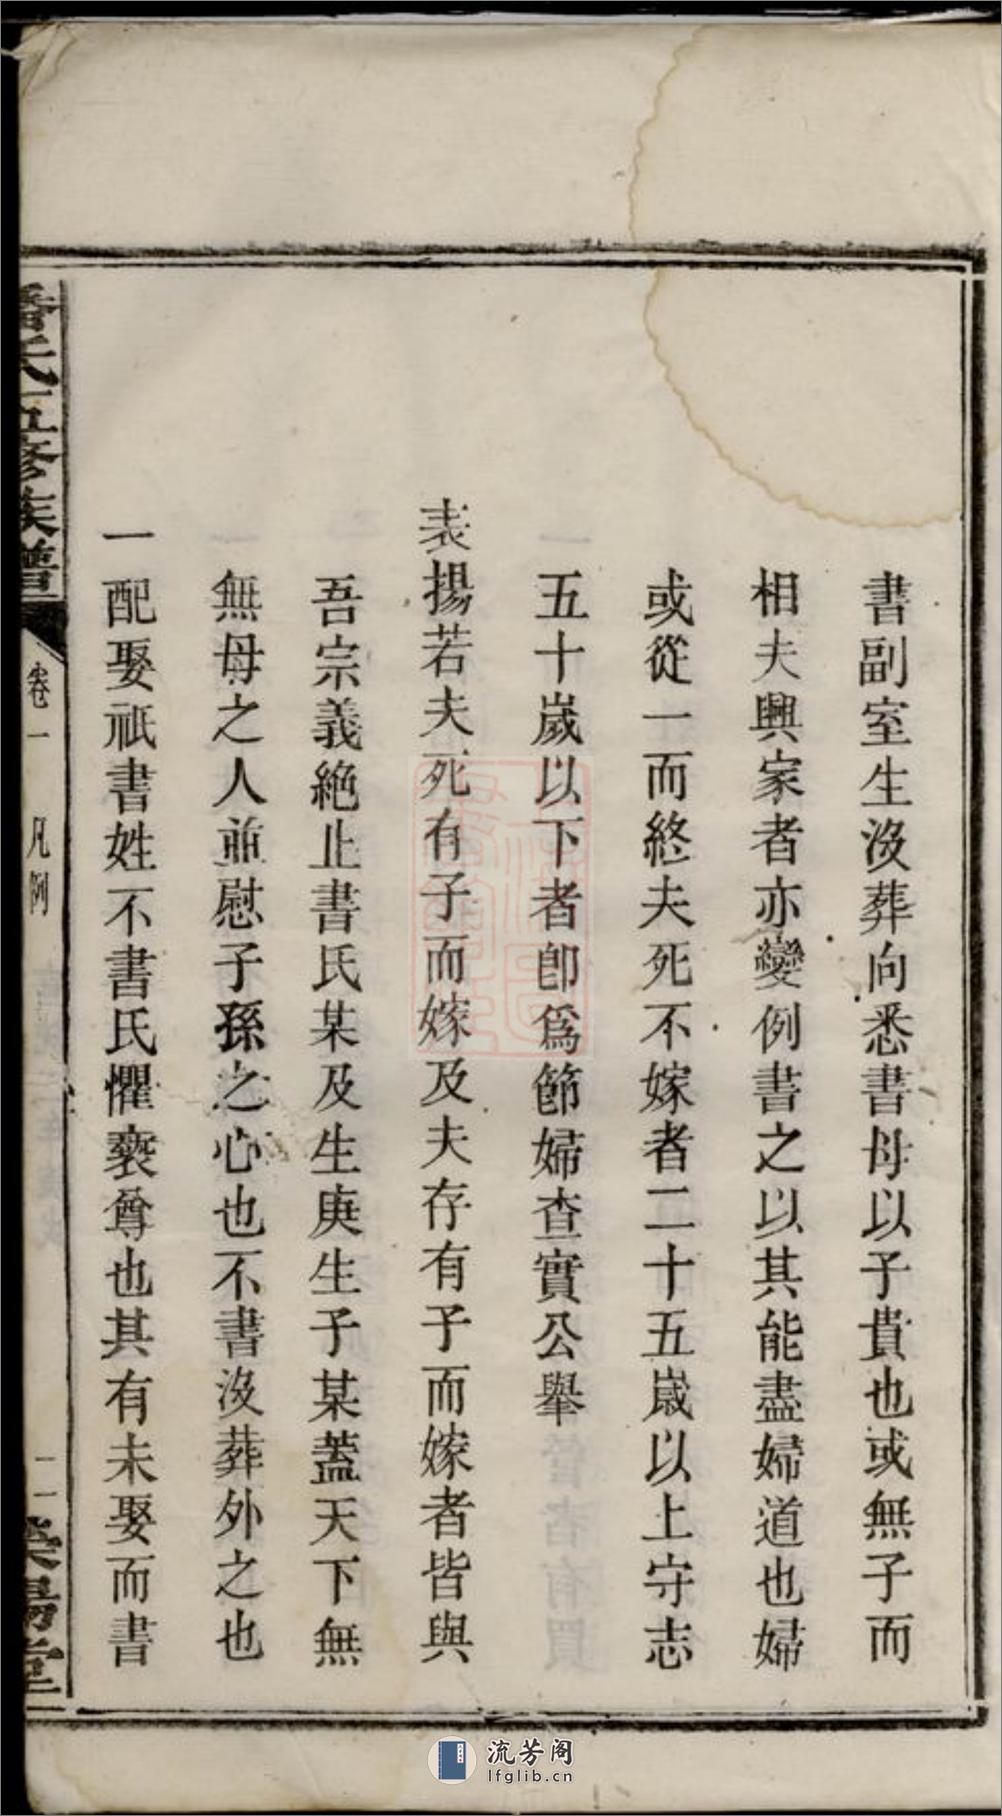 書副室生沒葬向悉書母以子貴也或無子而
相夫興家者亦變例書之以其能盡婦道也婦
或從一而終夫死不嫁者二十五歲以上守志
五十歲以下者卽爲節婦查實公舉
表揚若夫死有子而嫁及夫存有子而嫁者皆與
吾宗義絶止書氏某及生庚生子某蓋天下無
無母之人並慰子孫之心也不書沒葬外之也
一配娶祇書姓不書氏懼褻尊也其有未娶而書
潘氏五修族譜
卷一 凡例
二 滎陽堂
流芳阁
lfglib.cn